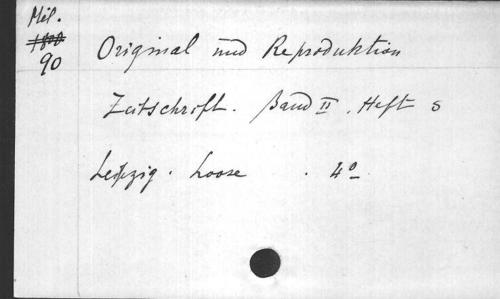 Mél.
90
Original und Reproduktion
Zeitschrift. Band II. Heft 5
Leipzig. Loose . 4º